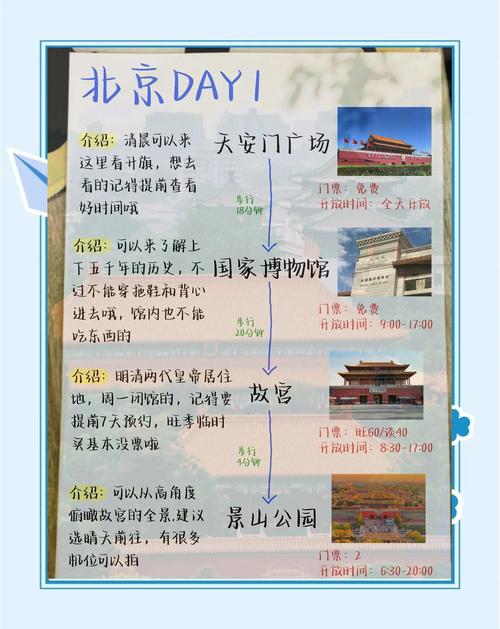 北京DAY1
介绍：清晨可以来
这里看升旗，想去
看的记得提前查看
好时间哦
天安门广场
门票：免费
开放时间：全天开放
步行
18分钟
介绍：可以来了解上
下五千年的历史，不
过不能穿拖鞋和背心
进去哦，馆内也不能
吃东西的
国家博物馆
门票：免费
开放时间：9:00-17:00
步行
20分钟
介绍：明清两代皇帝居住
地，周一闭馆的，记得要
提前7天预约，旺季临时
买基本没票啦
故宫
门票：旺60/淡40
开放时间：8:30-17:00
步行
4分钟
介绍：可以从高角度
俯瞰故宫的全景,建议
选晴天前往，有很多
机位可以拍
景山公园
门票：2
开放时间：6:30-20:00